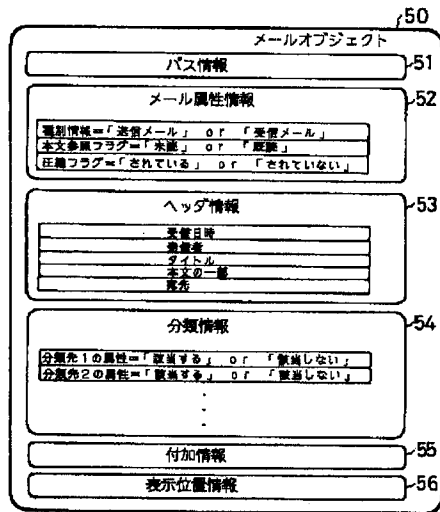 50
メールオブジェクト
パス情報
51
メール属性情報
52
種別情報=「送信メール」 or 「受信メール」
本文参照フラグ=「未読」 or 「既読」
圧縮フラグ=「されている」 or 「されていない」
ヘッダ情報
53
受信日時
発信者
タイトル
本文の一部
宛先
分類情報
54
分類先1の属性=「該当する」 or 「該当しない」
分類先2の属性=「該当する」 or 「該当しない」
付加情報
55
表示位置情報
56